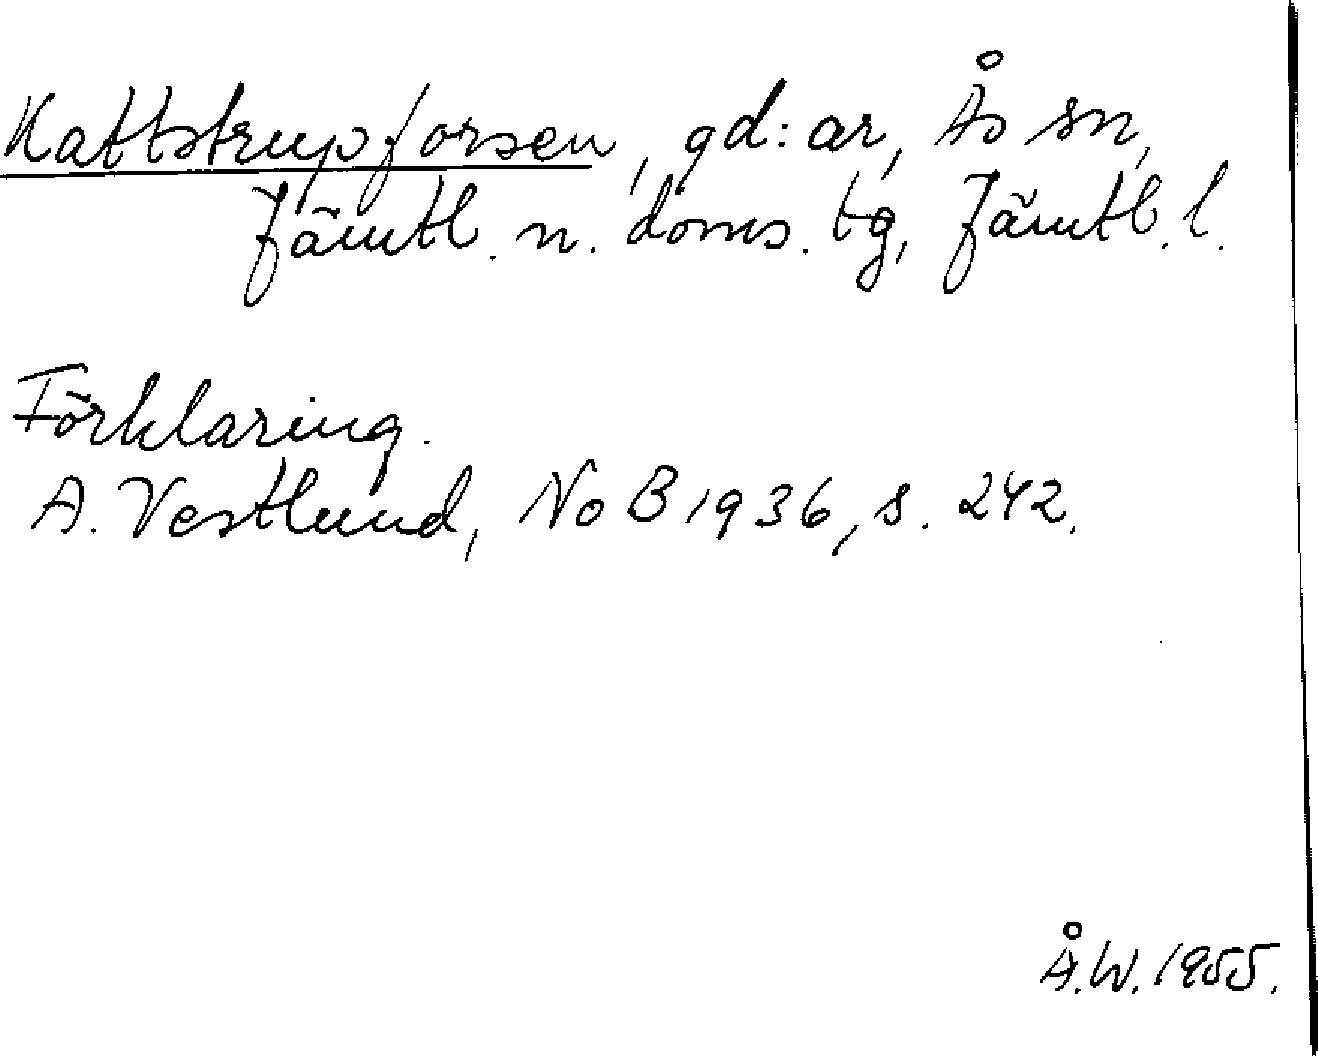 Kattstrupforsen, gd:ar, Ås sn,
Jämtl. n. doms. tg, Jämtl. l.
Förklaring.
A. Vestlund, NoB 1936, s. 242.
Å.W. 1955.